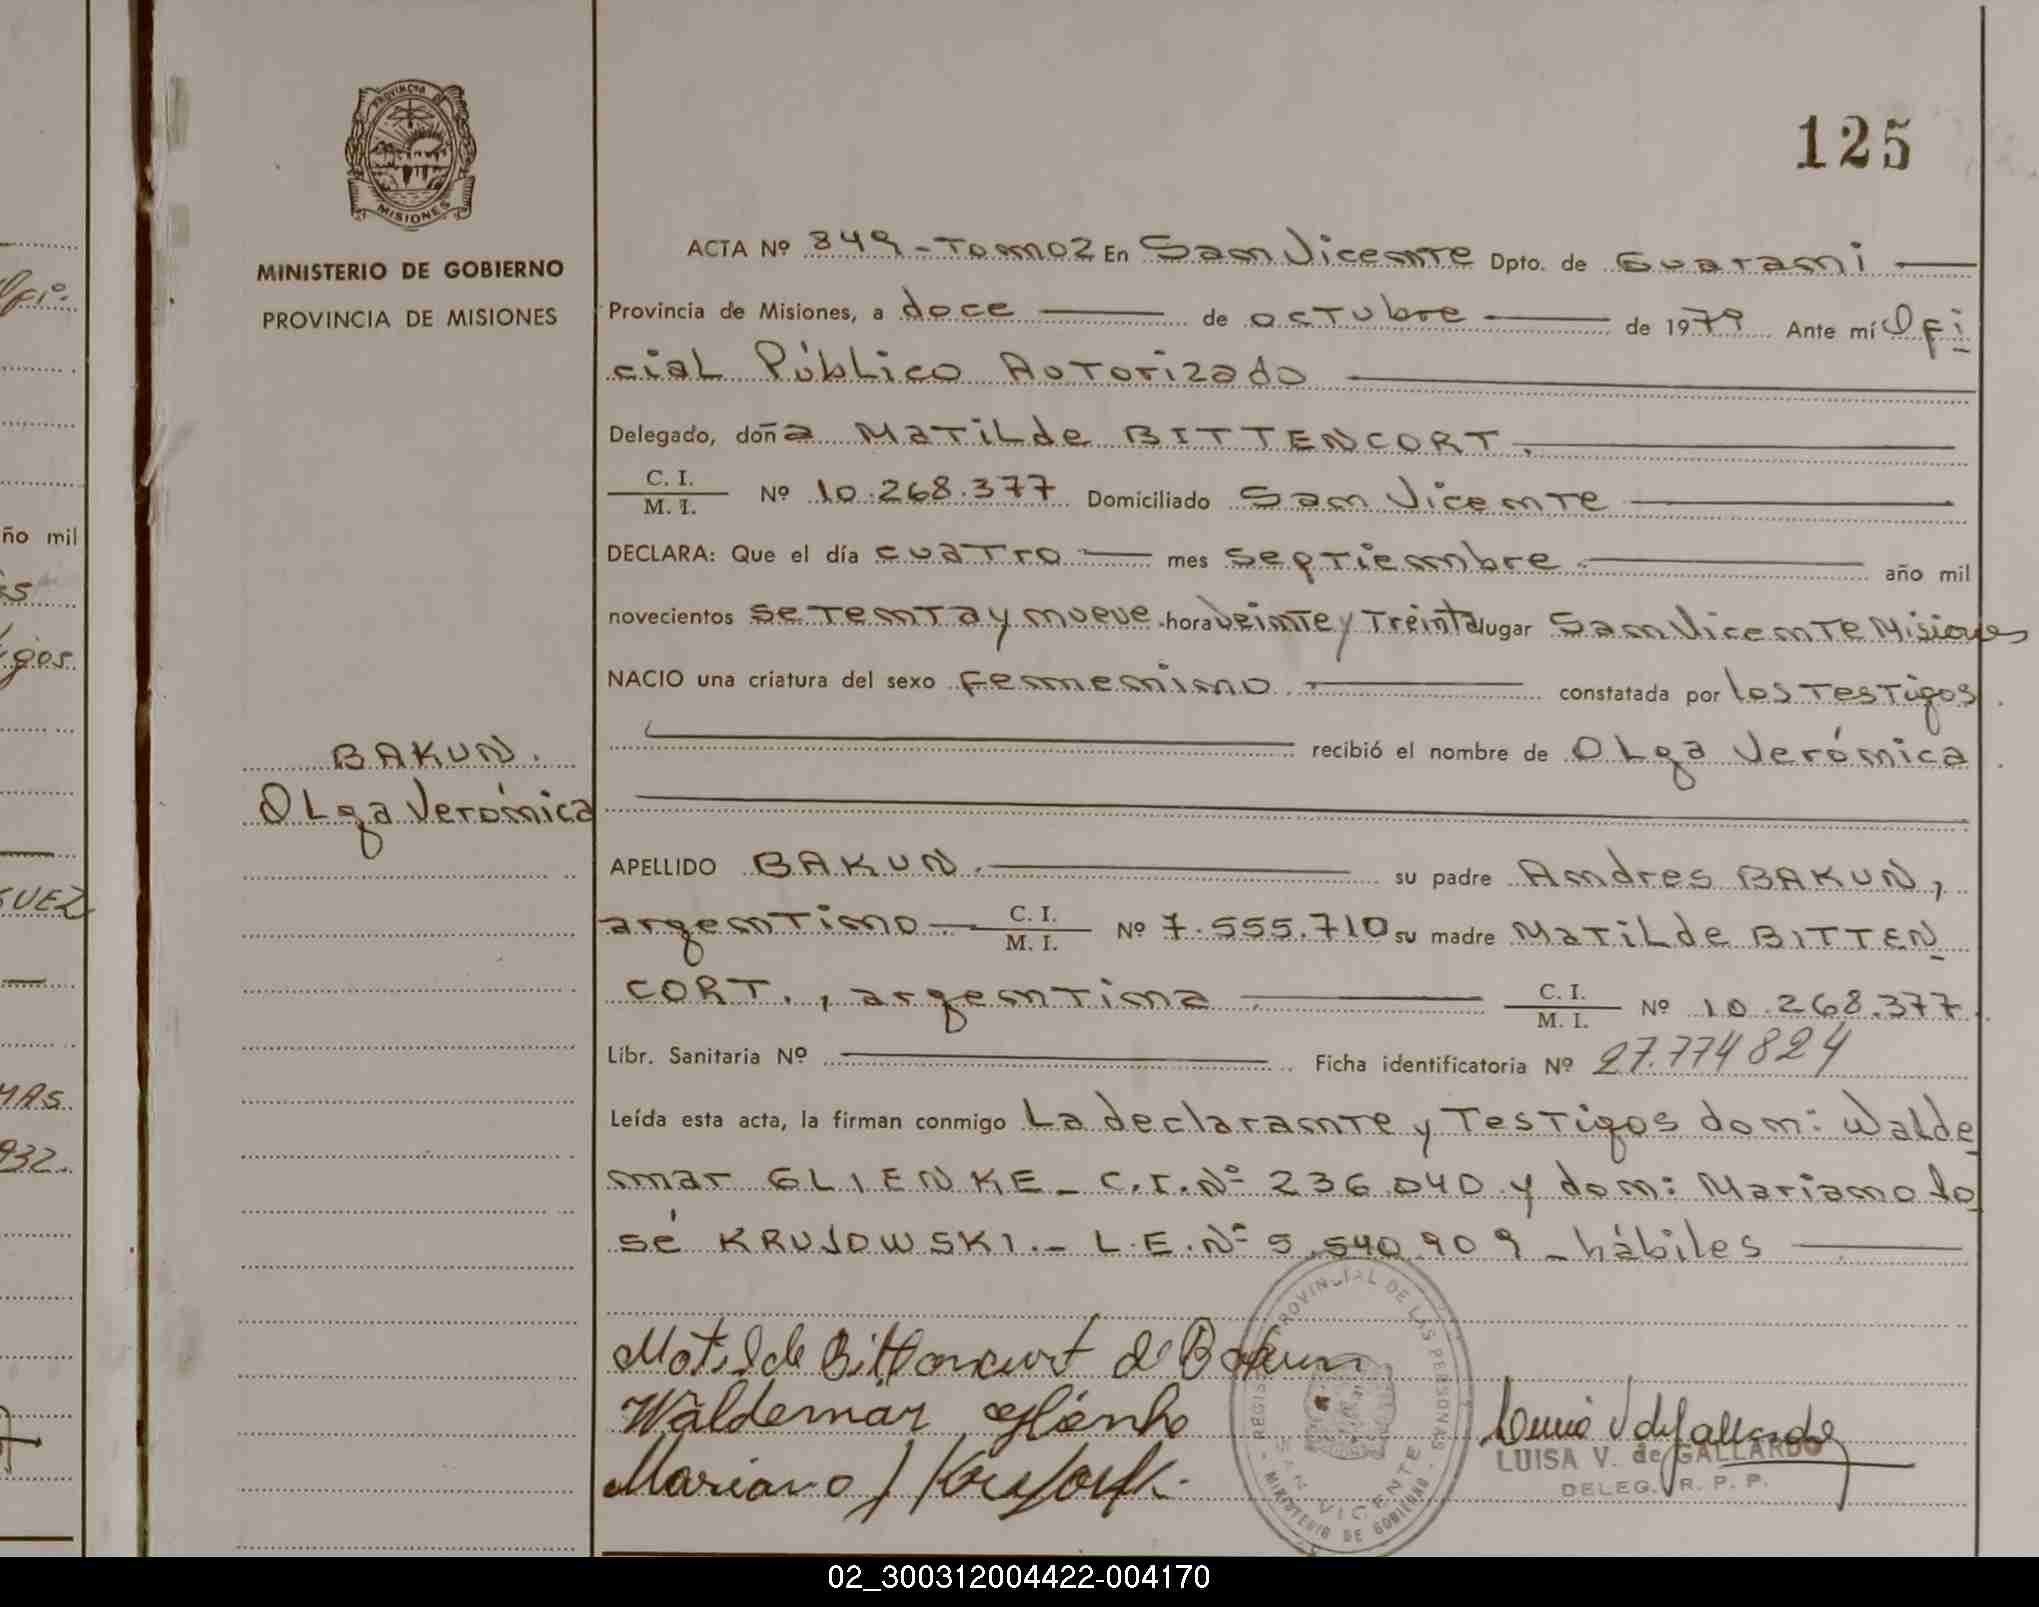 125
PROVINCIA DE
MISIONES
MINISTERIO DE GOBIERNO
PROVINCIA DE MISIONES
BAKUN.
Olga Verónica
ACTA Nº 849 - Tomo 2 En San Vicente Dpto. de Guarani
Provincia de Misiones, a doce de octubre de 1979 Ante mí Ofi
cial Público Autorizado
Delegado, doña Matilde BITTENCORT.
C. I.
M. I. Nº 10.268.377 Domiciliado San Vicente
DECLARA: Que el día cuatro mes septiembre año mil
novecientos setenta y nueve hora veinte y treinta lugar San Vicente Misiones
NACIO una criatura del sexo femenino constatada por los testigos
recibió el nombre de Olga Verónica
APELLIDO BAKUN. su padre Andres BAKUN,
argentino C. I.
M. I. Nº 7.555.710 su madre Matilde BITTEN
CORT., argentina C. I.
M. I. Nº 10.268.377
Libr. Sanitaria Nº Ficha identificatoria Nº 27.774824
Leída esta acta, la firman conmigo La declarante y Testigos don: Walde
mar GLIENKE - C.I. Nº 236040 y don: Mariano Jo
sé KRUJOWSKI.- L.E. Nº 5.540.909 - hábiles
Matilde Bittancurt de Bakun
Waldemar
Mariano J
REGISTRO PROVINCIAL DE LAS PERSONAS
SAN VICENTE
MINISTERIO DE GOBIERNO
LUISA V. de GALLARDO
DELEG. R. P. P.
Ofi.
año mil
gos
GUEZ
MAS
932.
02_300312004422-004170